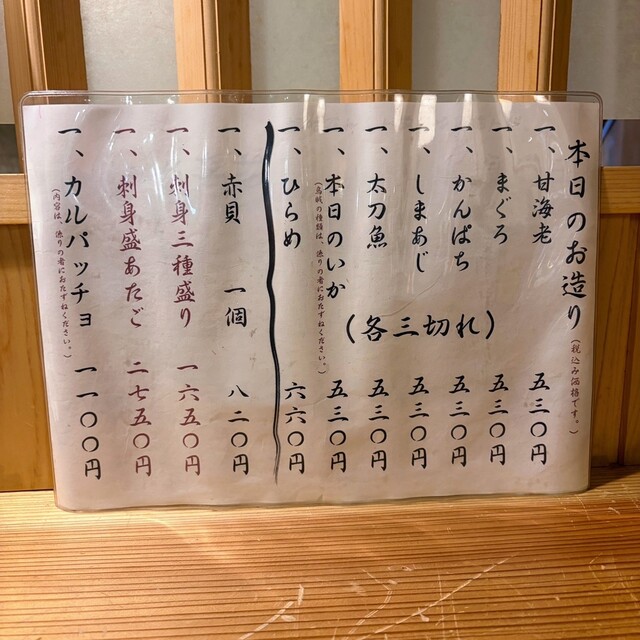 本日のお造り（税込み価格です。）
一、甘海老 五三〇円
一、まぐろ 五三〇円
一、かんぱち 五三〇円
一、しまあじ 五三〇円
一、太刀魚 五三〇円
一、本日のいか 五三〇円
（烏賊の種類は、係りの者におたずねください。）
一、ひらめ 六六〇円
（各三切れ）
一、赤貝 一個 八二〇円
一、刺身三種盛り 一六五〇円
一、刺身盛あたご 二七五〇円
一、カルパッチョ 一一〇〇円
（内容は、係りの者におたずねください。）